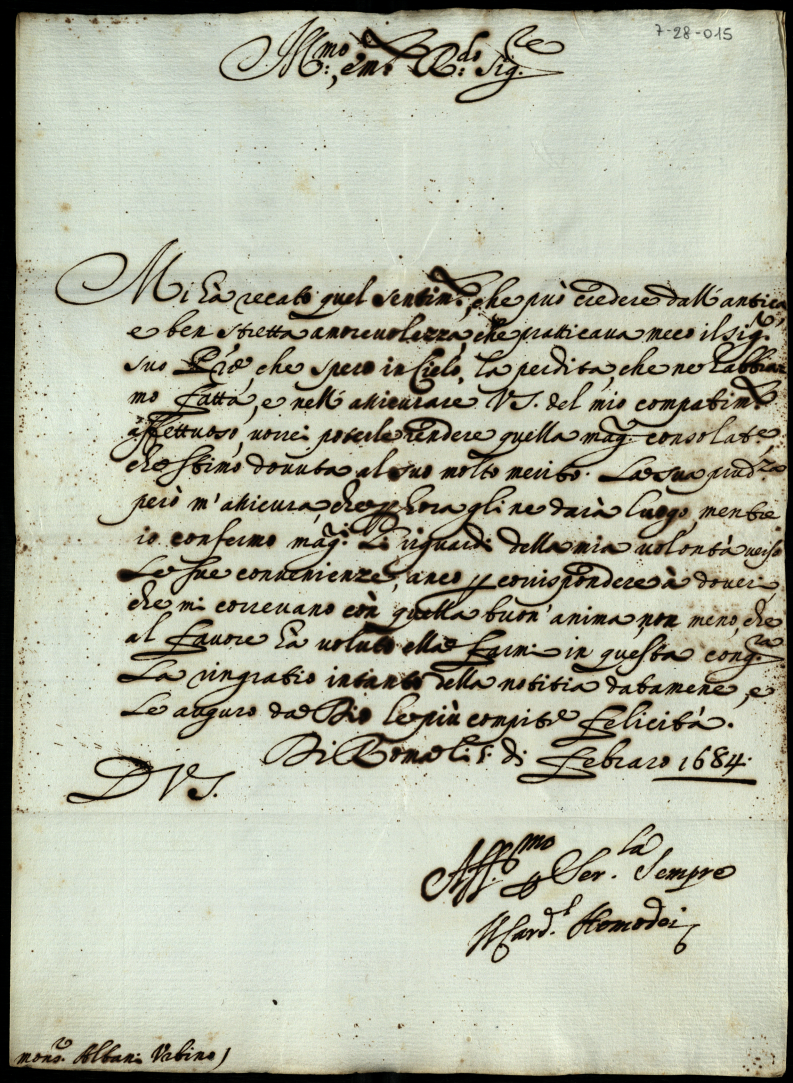 7-28-015
Ill.mo, e m.o R.do Sig.re
Mi hà recato quel sentim.to, che può credere dall'antica,
e ben stretta amorevolezza, che pratticava meco il sig.r
suo P̃re, che spero in Cielo, la perdita, che ne habbia-
mo fatta, e nell'assicurare VS. del mio compatim.to
affettuoso, vorrei poterle rendere quella mag.r consolat.e
che stimo dovuta al suo molto merito. La sua prud.za
però m'assicura, che p hora gli ne darà luogo, mentre
io confermo mag.ri li riguardi della mia volontà verso
le sue convenienze, anco p corrispondere à doveri,
che mi correvano con quella buon'anima, non meno, che
al favore hà voluto ella farmi in questa cong.ra
La ringratio intanto della notitia datamene, e
le auguro da Dio le più compite felicità.
Di Roma li 5. di Febraro 1684.
D VS.
Aff.mo p Ser.la Sempre
Il Card.l Homodei
mons.r Albani Urbino)